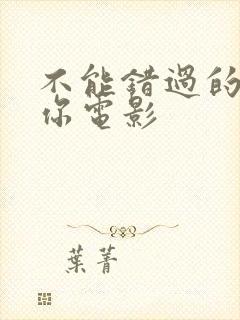 不能錯過的
你電影
葉菁